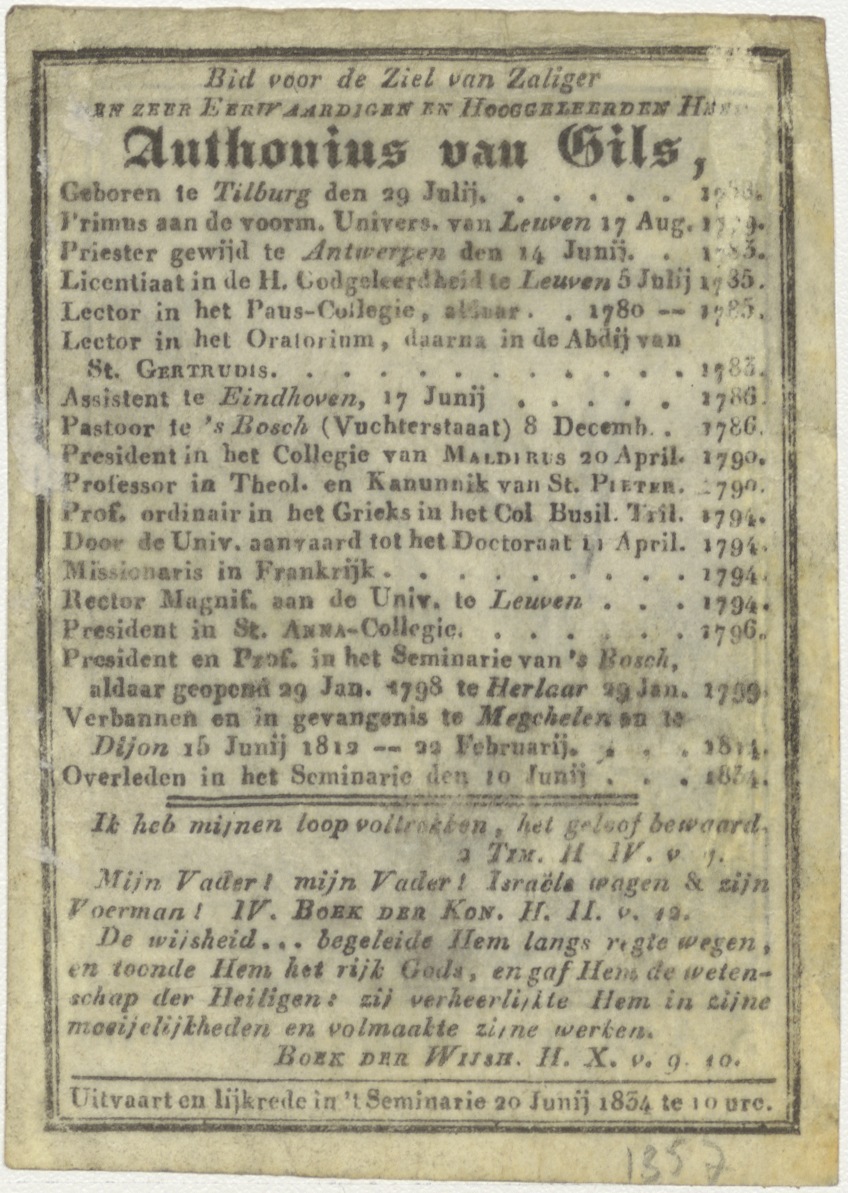 Bid voor de Ziel van Zaliger
EN ZEER EERWAARDIGEN EN HOOGGELEERDEN
Anthonius van Gils,
Geboren te Tilburg den 29 Julij. . . . . . .
Primus aan de voorm. Univers. van Leuven 17 Aug.
Priester gewijd te Antwerpen den 14 Junij. .
Licentiaat in de H. Godgeleerdheid te Leuven 5 Julij 1785.
Lector in het Paus-Collegie, aldaar. . 1780 -- 1785.
Lector in het Oratorium, daarna in de Abdij van
St. GERTRUDIS. . . . . . . . . . . . .
Assistent te Eindhoven, 17 Junij . . . . . 1786.
Pastoor te 's Bosch (Vuchterstaaat) 8 Decemb. . 1786.
President in het Collegie van MALDIRUS 20 April. 1790.
Professor in Theol. en Kanunnik van St. PIETER. 1790.
Prof. ordinair in het Grieks in het Col Busil. Tril. 1794.
Door de Univ. aanvaard tot het Doctoraat 11 April. 1794.
Missionaris in Frankrijk. . . . . . . . . 1794.
Rector Magnif. aan de Univ. te Leuven . . . 1794.
President in St. ANNA-Collegie. . . . . . . 1796.
President en Prof. in het Seminarie van 's Bosch,
aldaar geopend 29 Jan. 1798 te Herlaar 29 Jan. 1799.
Verbannen en in gevangenis te Megchelen en te
Dijon 15 Junij 1812 -- 22 Februarij. . . . 1814.
Overleden in het Seminarie den 10 Junij . . . 1834.
Ik heb mijnen loop voltrokken, het geloof bewaard.
2 TIM. H IV. v 7.
Mijn Vader! mijn Vader! Israëls wagen & zijn
Voerman! IV. BOEK DER KON. H. II. v. 12.
De wijsheid... begeleide Hem langs regte wegen,
en toonde Hem het rijk Gods, en gaf Hem de weten-
schap der Heiligen: zij verheerlijkte Hem in zijne
moeijelijkheden en volmaakte zijne werken.
BOEK DER WIJSH. H. X. v. 9. 10.
Uitvaart en lijkrede in 't Seminarie 20 Junij 1834 te 10 ure.
1357